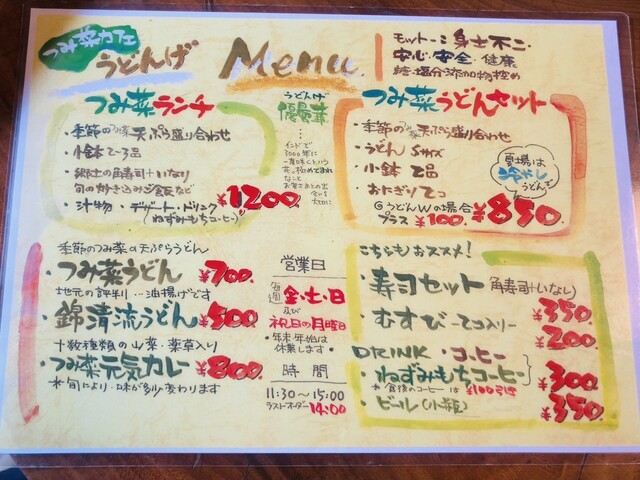 つみ菜カフェ
うどんげ
Menu
モットー:身土不二
安心・安全・健康
糖・塩分・添加物控め
つみ菜ランチ
・季節のつみ菜天ぷら盛り合わせ
・小鉢 2~3品
・郷土の角寿司+いなり
旬の炒き込みご飯など
・汁物・デザート・ドリンク
(ねずみもちコーヒー)
¥1200
うどんげ
優曇華
…
インドで
3000年に
一度咲くという
花。極めてまれ
なこと
つみ菜うどんセット
・季節のつみ菜天ぷら盛り合わせ
・うどん Sサイズ
・小鉢 2品
・おにぎり 2コ
◎うどんWの場合
プラス ¥100.
¥850
夏場は
冷やし
うどん
季節のつみ菜の天ぷらうどん
・つみ菜うどん ¥700
地元の評判…油揚げです
・錦清流うどん ¥500
十数種類の山菜・薬草入り
・つみ菜元気カレー ¥800
*旬により・味が多少変わります
営業日
毎週 金・土・日
及び
祝日の月曜日
・年末・年始は
休業します・
時間
11:30~15:00
ラストオーダー 14:00
こちらもオススメ!
・寿司セット (角寿司+いなり)
¥350
・むすび -2コ入り-
¥200
DRINK・コーヒー
・ねずみもちコーヒー ¥300
*食後のコーヒーは¥100引き
・ビール(小瓶) ¥350